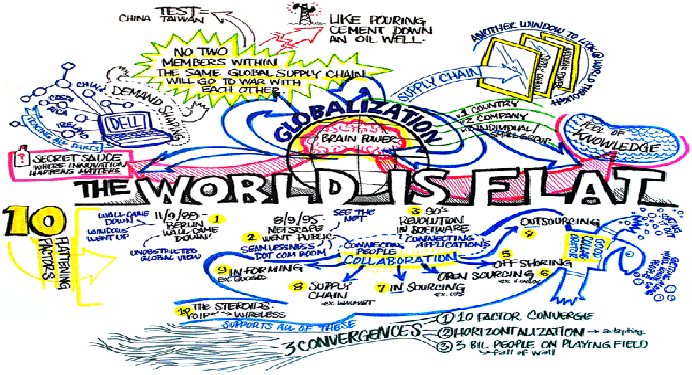 TEST
CHINA TAIWAN
LIKE POURING
CEMENT DOWN
AN OIL WELL.
NO TWO
MEMBERS WITHIN
THE SAME GLOBAL SUPPLY CHAIN
WILL GO TO WAR WITH
EACH OTHER
ANOTHER WINDOW TO LOOK @ WORLD THROUGH
SUPPLY CHAIN
CHINA
DEMAND
DELL
GLOBALIZATION
BRAIN POWER
COUNTRY
COMPANY
INDIVIDUAL
KNOWLEDGE
SECRET SAUCE
WHERE INNOVATION
HAPPENS MATTERS
THE WORLD IS FLAT
10
FLATTENING
FACTORS
WALL CAME
DOWN
WINDOWS
WENT UP
11/9/89
BERLIN
WALL CAME
DOWN!
1
UNOBSTRUCTED
GLOBAL VIEW
8/9/95
NETSCAPE
2 WENT PUBLIC
SEAMLESSNESS
DOT COM BOOM
SEE THE
3 90'S
REVOLUTION
IN SOFTWARE
CONNECTING
APPLICATIONS
CONNECTING
PEOPLE
COLLABORATION
OUTSOURCING
5
OFF SHORING
OPEN SOURCING 6
7 IN SOURCING
ex. UPS
8 SUPPLY
CHAIN
ex. WALMART
9 IN-FORMING
ex. GOOGLE
10 THE STEROIDS
VOIP WIRELESS
SUPPORTS ALL OF THESE
3 CONVERGENCES
1 10 FACTOR CONVERGE
2 HORIZONTALIZATION
3 3 BIL PEOPLE ON PLAYING FIELD
fall of wall